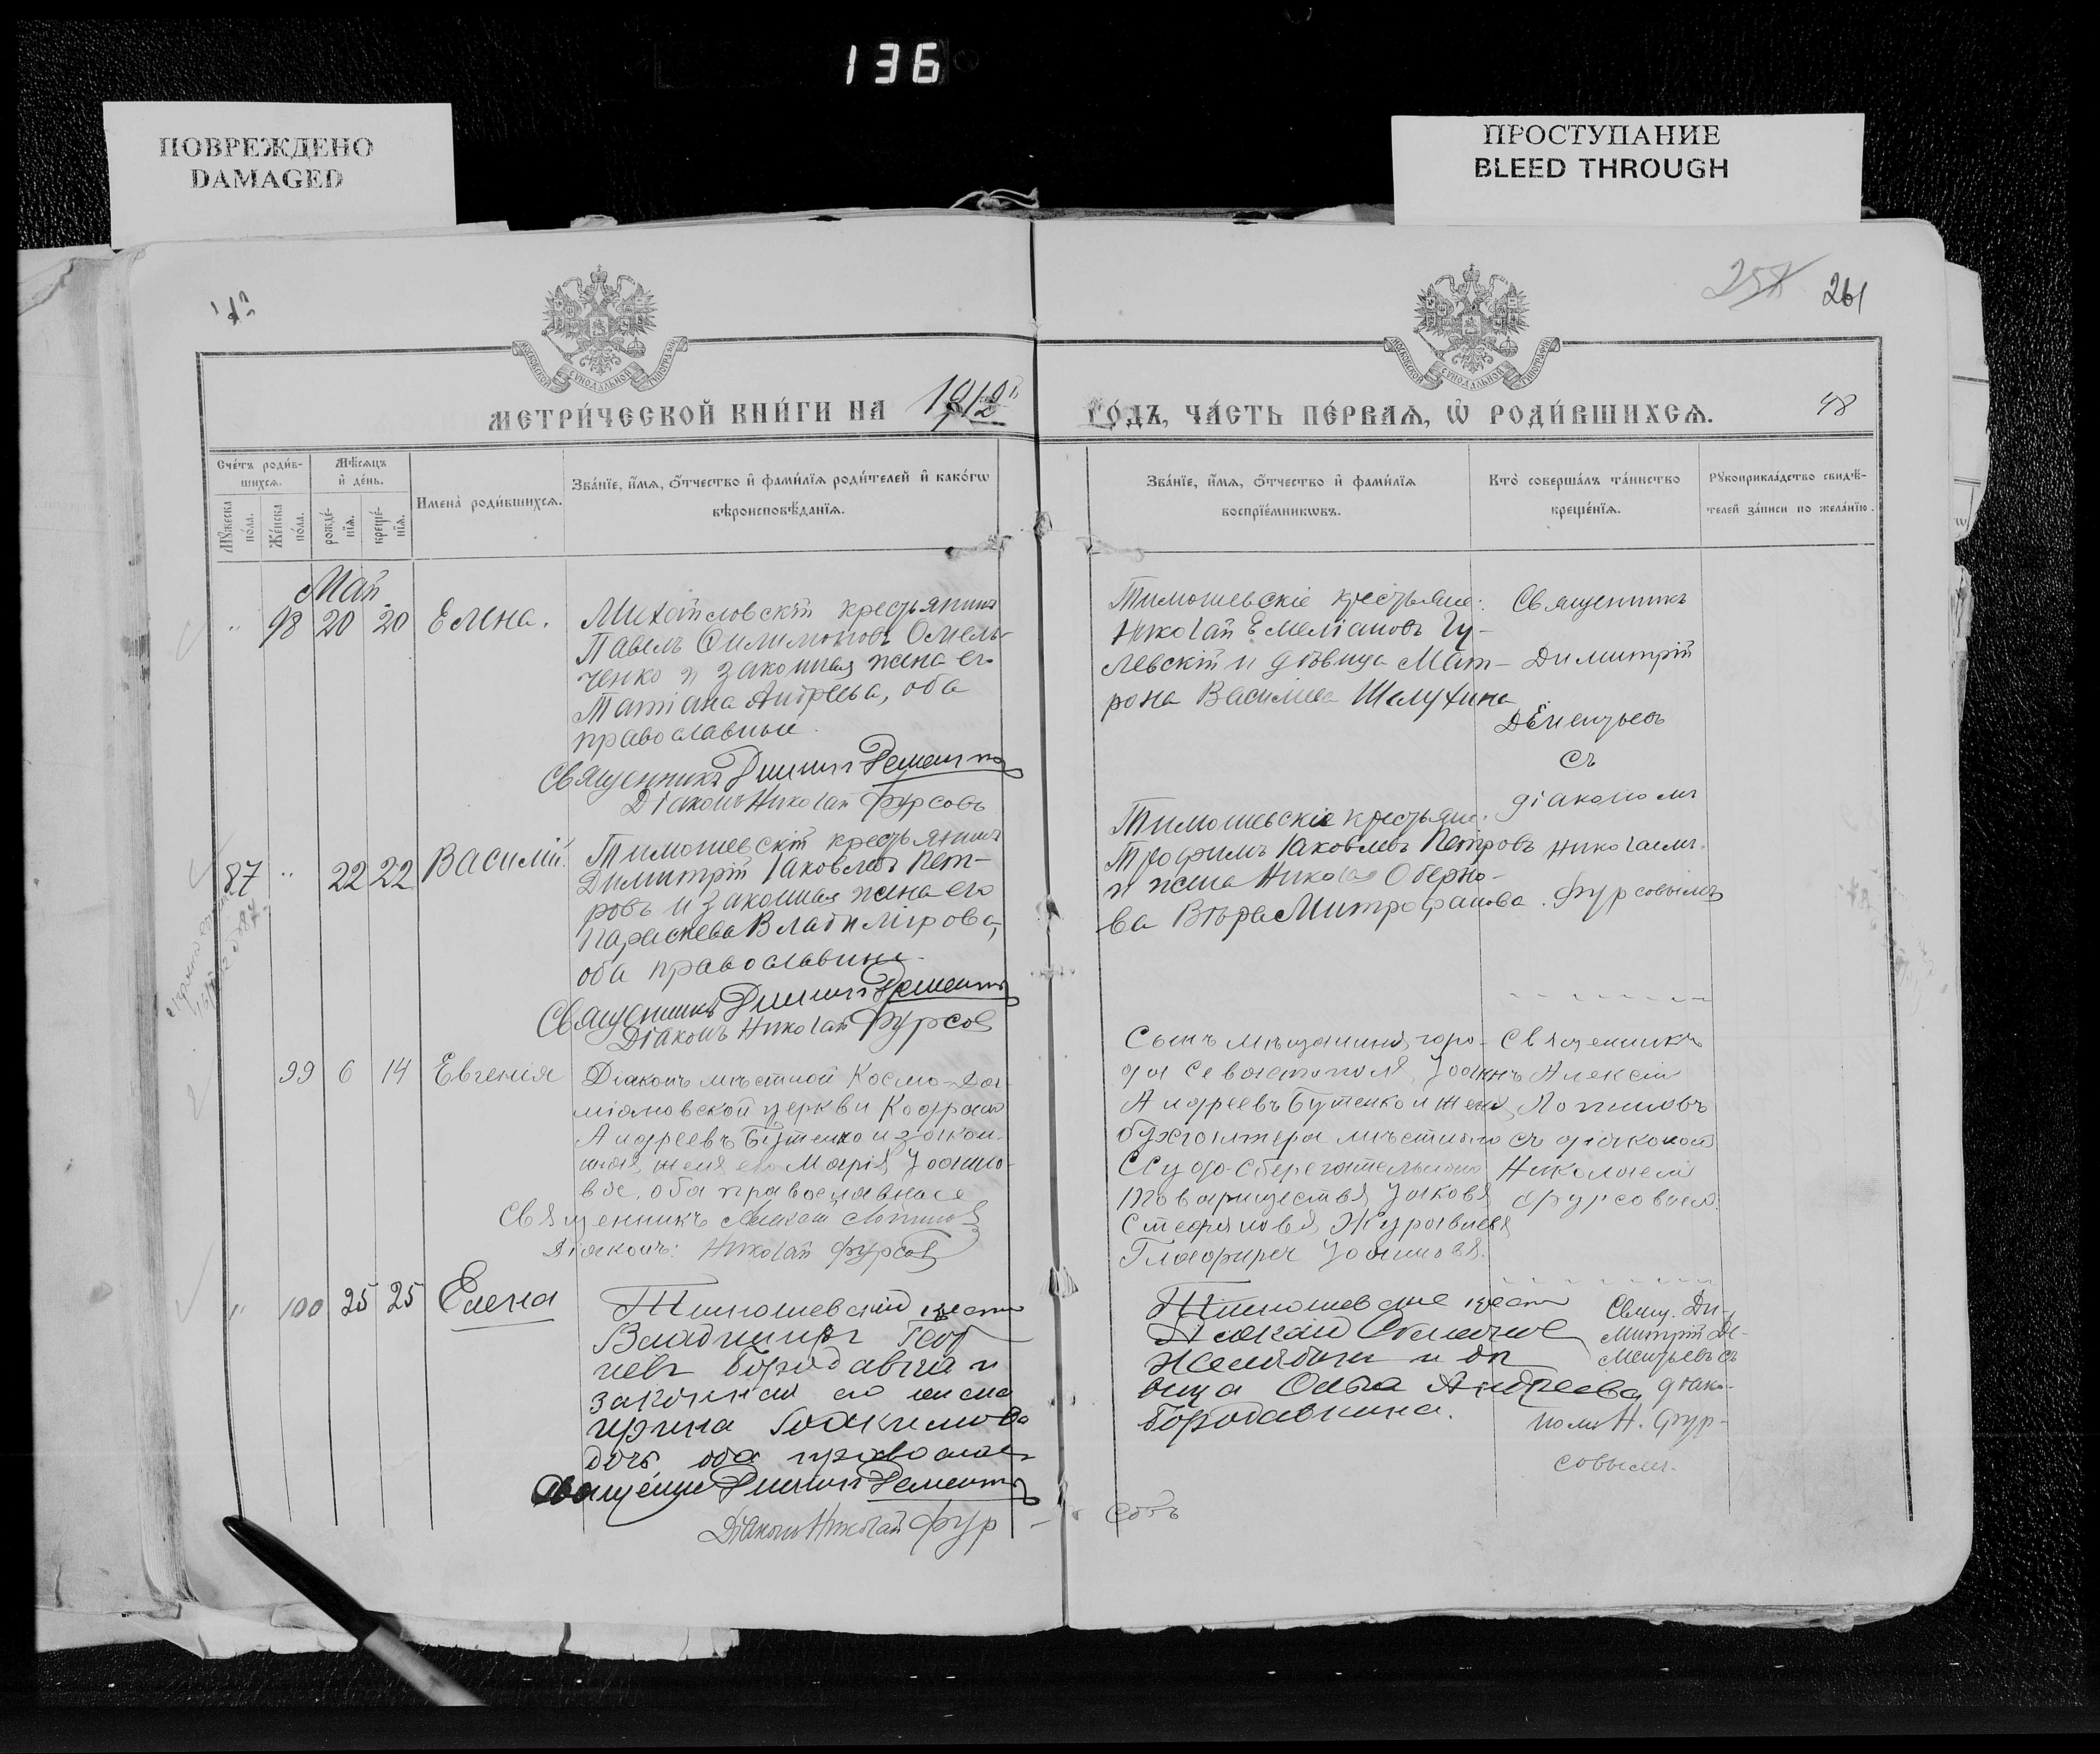 136
ПОВРЕЖДЕНО
DAMAGED
ПРОСТУПАНИЕ
BLEED THROUGH
261
МОСКОВСКОЙ СУНОДАЛЬНОЙ ТИПОГРАФІИ
МОСКОВСКОЙ СУНОДАЛЬНОЙ ТИПОГРАФІИ
МЕТРИ́ЧЕСКОЙ КНИ́ГИ НА 1912
ГО́ДЪ, ЧА́СТЬ ПЕ́РВАѦ, Ѡ҆ РОДИ́ВШИХСѦ.
48
Сче́тъ роди́в-
шихсѧ.
Мꙋ́жеска
по́ла.
Же́нска
по́ла.
Мѣ́сѧцъ
и҆ де́нь.
рожде́-
нїѧ.
креще́-
нїѧ.
И҆мена̀ роди́вшихсѧ.
Зва́нїе, и҆́мѧ, ѻ҆́тчество и҆ фами́лїѧ роди́телей и҆ како́гѡ
вѣроисповѣ́данїѧ.
Зва́нїе, и҆́мѧ, ѻ҆́тчество и҆ фами́лїѧ
воспрїе́мникѡвъ.
Кто̀ соверша́лъ та́инство
креще́нїѧ.
Рꙋкоприкла́дство свидѣ́-
телей за́писи по жела́нїю.
Май
" 98 20 20 Елена.
Михайловскій крестьянинъ
Павелъ Филимоновъ Омель-
ченко и законная жена его
Татіана Андреева, оба
православные.
Священникъ Димитрій Дементьевъ
Діаконъ Николай Фурсовъ
Тимошевскіе крестьяне:
Николай Емеліановъ Гу-
левскій и дѣвица Мат-
рона Василіева Шелухина
Священникъ
Димитрій
Дементьевъ
съ
діакономъ
Николаемъ
Фурсовымъ
87 " 22 22 Василій.
Тимошевскій крестьянинъ
Димитрій Іаковлевъ Пет-
ровъ и законная жена его
Параскева Владимірова,
оба православные
Священникъ Димитрій Дементьевъ
Діаконъ Николай Фурсов
Тимошевскіе крестьяне:
Трофимъ Іаковлевъ Петровъ
и жена Николая Оберно-
ва Вѣра Митрофанова.
99 6 14 Евгенія
Діаконъ мѣстной Космо-Дa-
міановской церкви
Андреевъ Бутенко и закон-
ная жена его Марія Іоанно-
ва, оба православные
Священникъ Алексій Лотинов
Діаконъ: Николай Фурсов
Сынъ мѣщанина горо-
да Севастополя Іоаннъ
Андреевъ Бутенко и жена
бухгалтера мѣстнаго
Ссудо-сберегательнаго
товарищества Іакова
Стефанова Журавлева
Глафира Іоаннова.
Священникъ
Алексій
Лотиновъ
съ діакономъ
Николаемъ
Фурсовымъ.
" 100 25 25 Елена
Тимошевскій крест
Владимиръ
Бородавкин и
законная его жена
Ирина Іоакимова
оба православ
Священ Димитрій Дементьевъ
Діаконъ Николай Фур -
совъ
Тимошевские крест
и дѣ
вица Ольга Андреева
Бородавкина.
Свящ. Ди-
митрій Де-
ментьевъ съ
діако-
номъ Н. Фур-
совымъ.